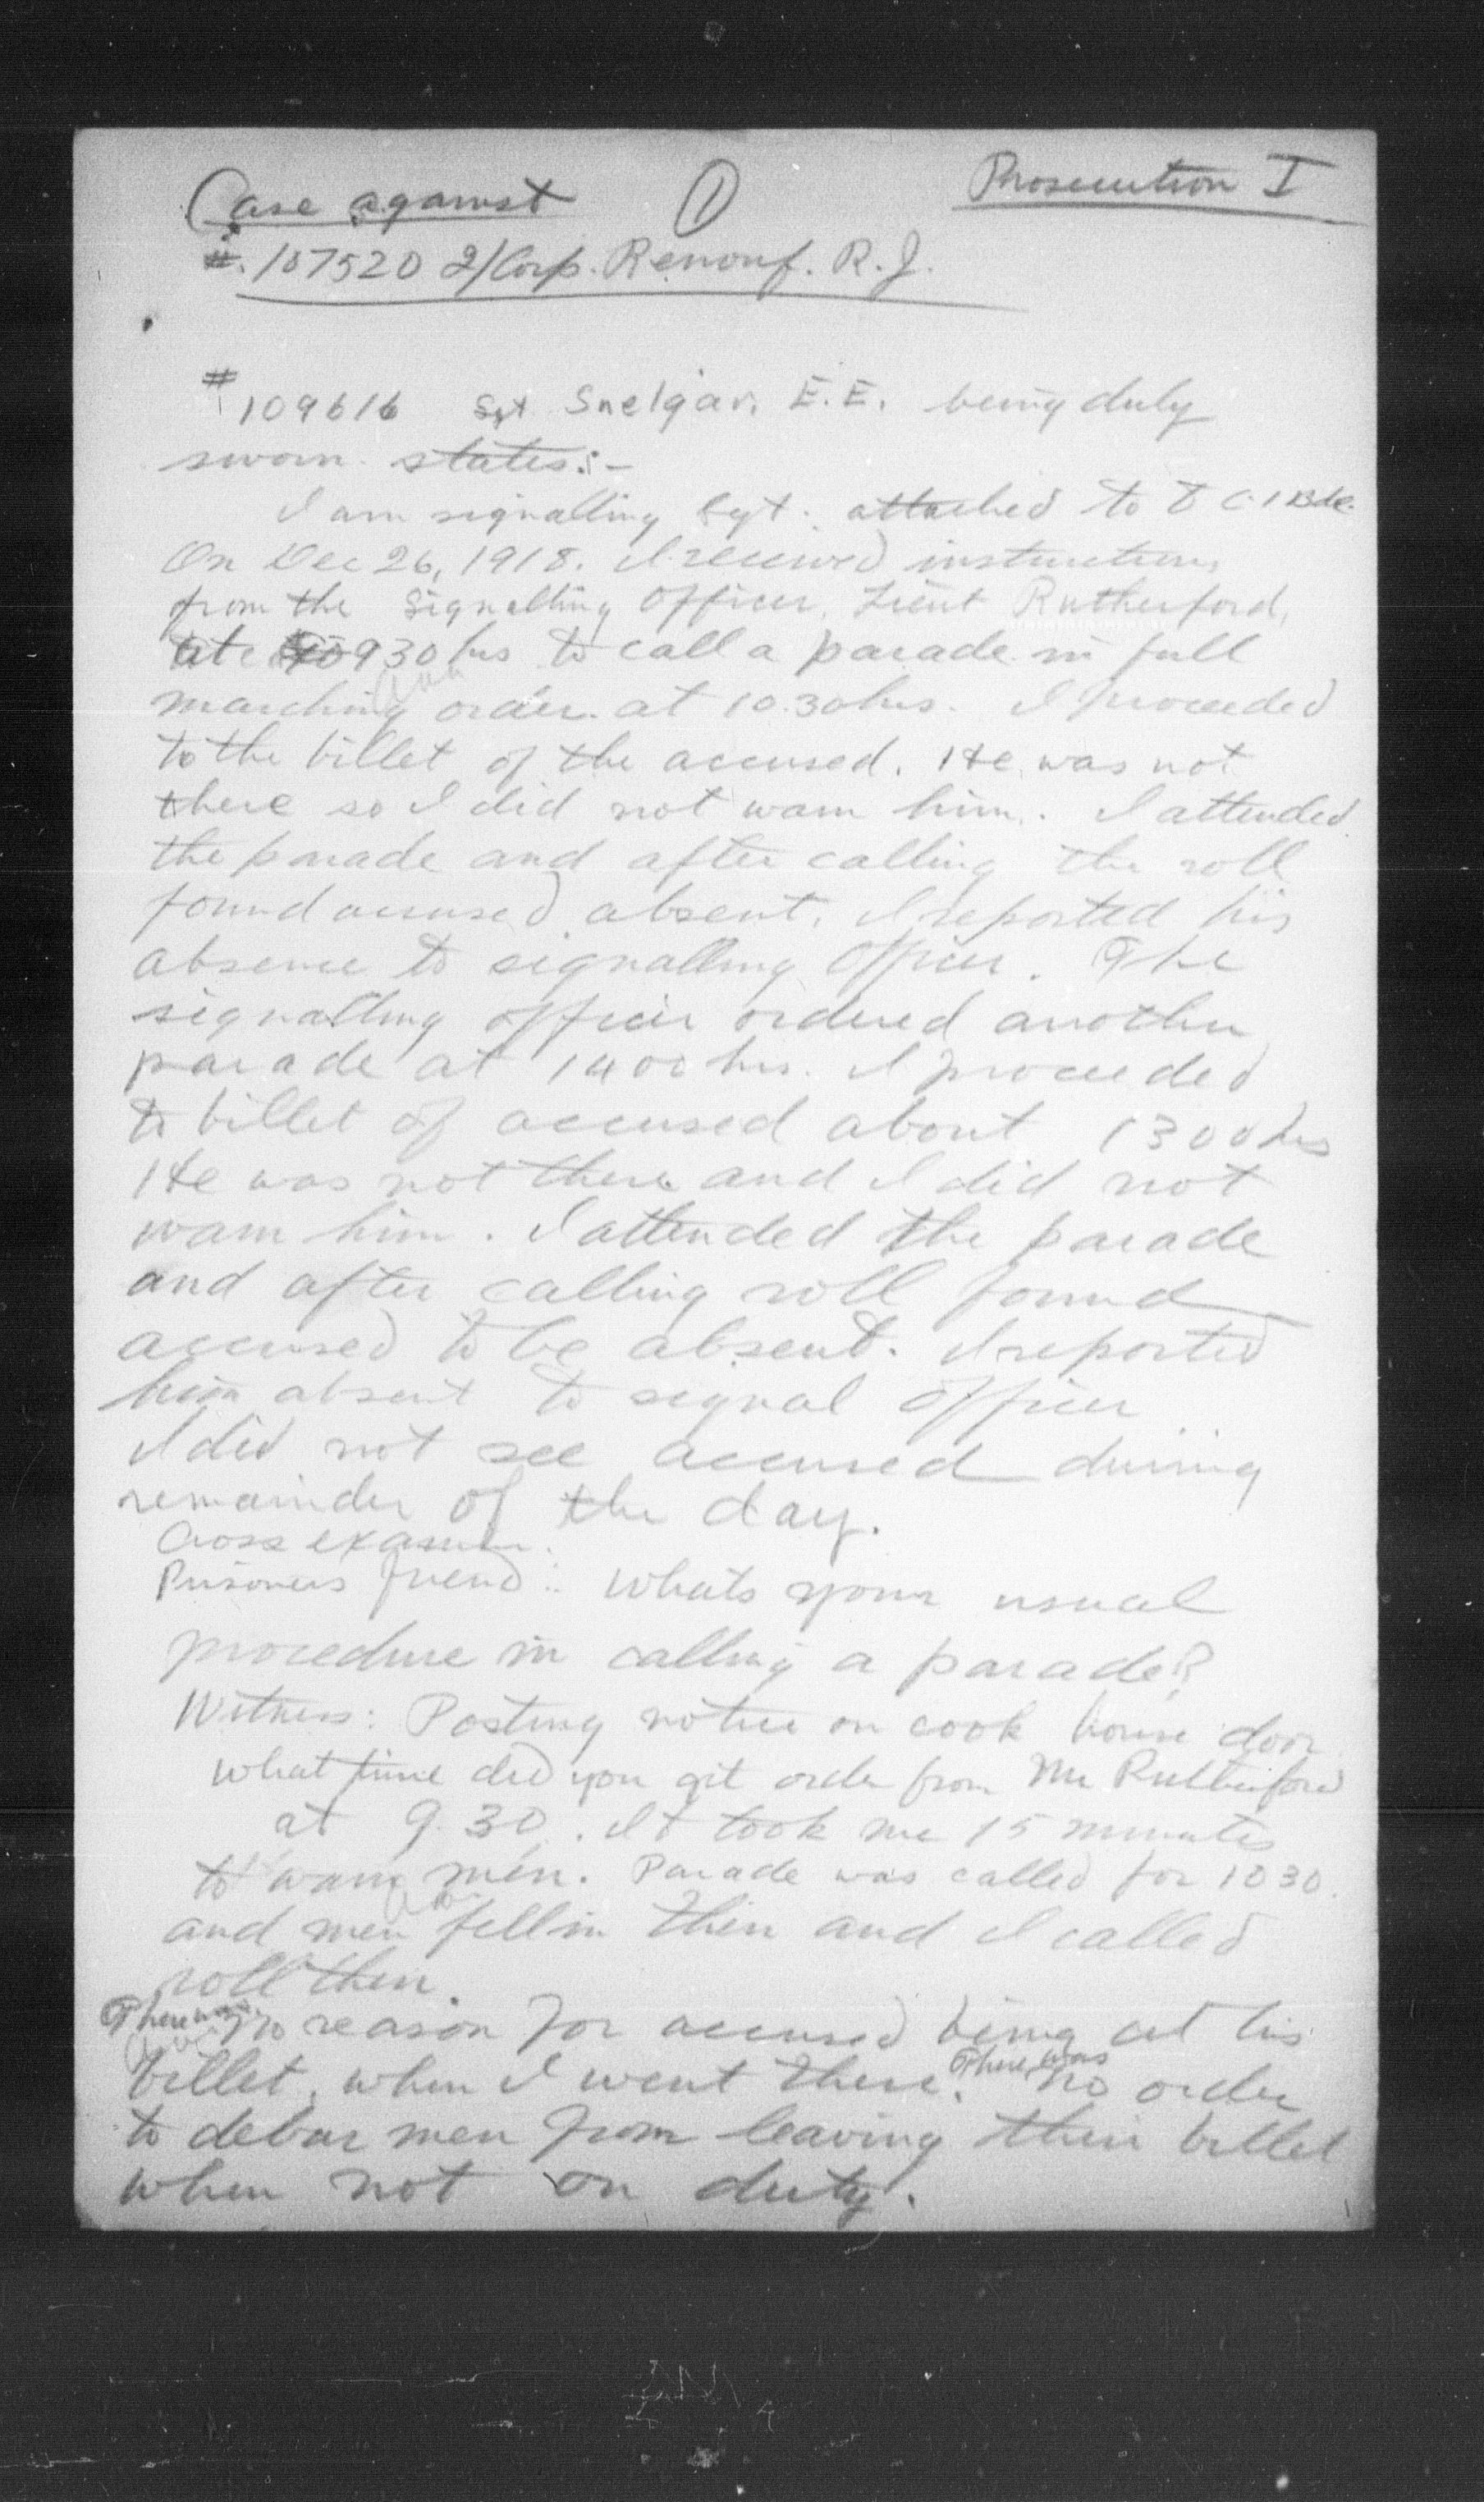 Case against ① Prosecution I
#. 107520 2/Corp. Renouf. R. J.
# 109616 Sgt Snelgar, E.E. being duly
sworn states:-
I am signalling Sgt. attached to
On Dec 26, 1918. I received instructions
from the Signalling Officer, Lieut Rutherford,
at 0930 hrs to call a parade in full
marching order at 10.30 hrs. I proceeded
to the billet of the accused. He was not
there so I did not warn him. I attended
the parade and after calling the roll
found accused absent. I reported his
absence to signalling Officer. The
signalling officer ordered another
parade at 1400 hrs. I proceeded
to billet of accused about 1300 hrs
He was not there and I did not
warn him. I attended the parade
and after calling roll found
accused to be absent. I reported
him absent to signal officer
I did not see accused during
remainder of the day.
Cross examin.
Prisoners friend: Whats your usual
procedure in calling a parade?
Witness: Posting notice on cook house door
What time did you git order from Mr Rutherford
at 9.30. It took me 15 minutes
to warn men. Parade was called for 1030.
and men fell in then and I called
roll then.
There was no reason for accused being at his
billet, when I went there. There was no order
to debar men from leaving their billet
when not on duty.